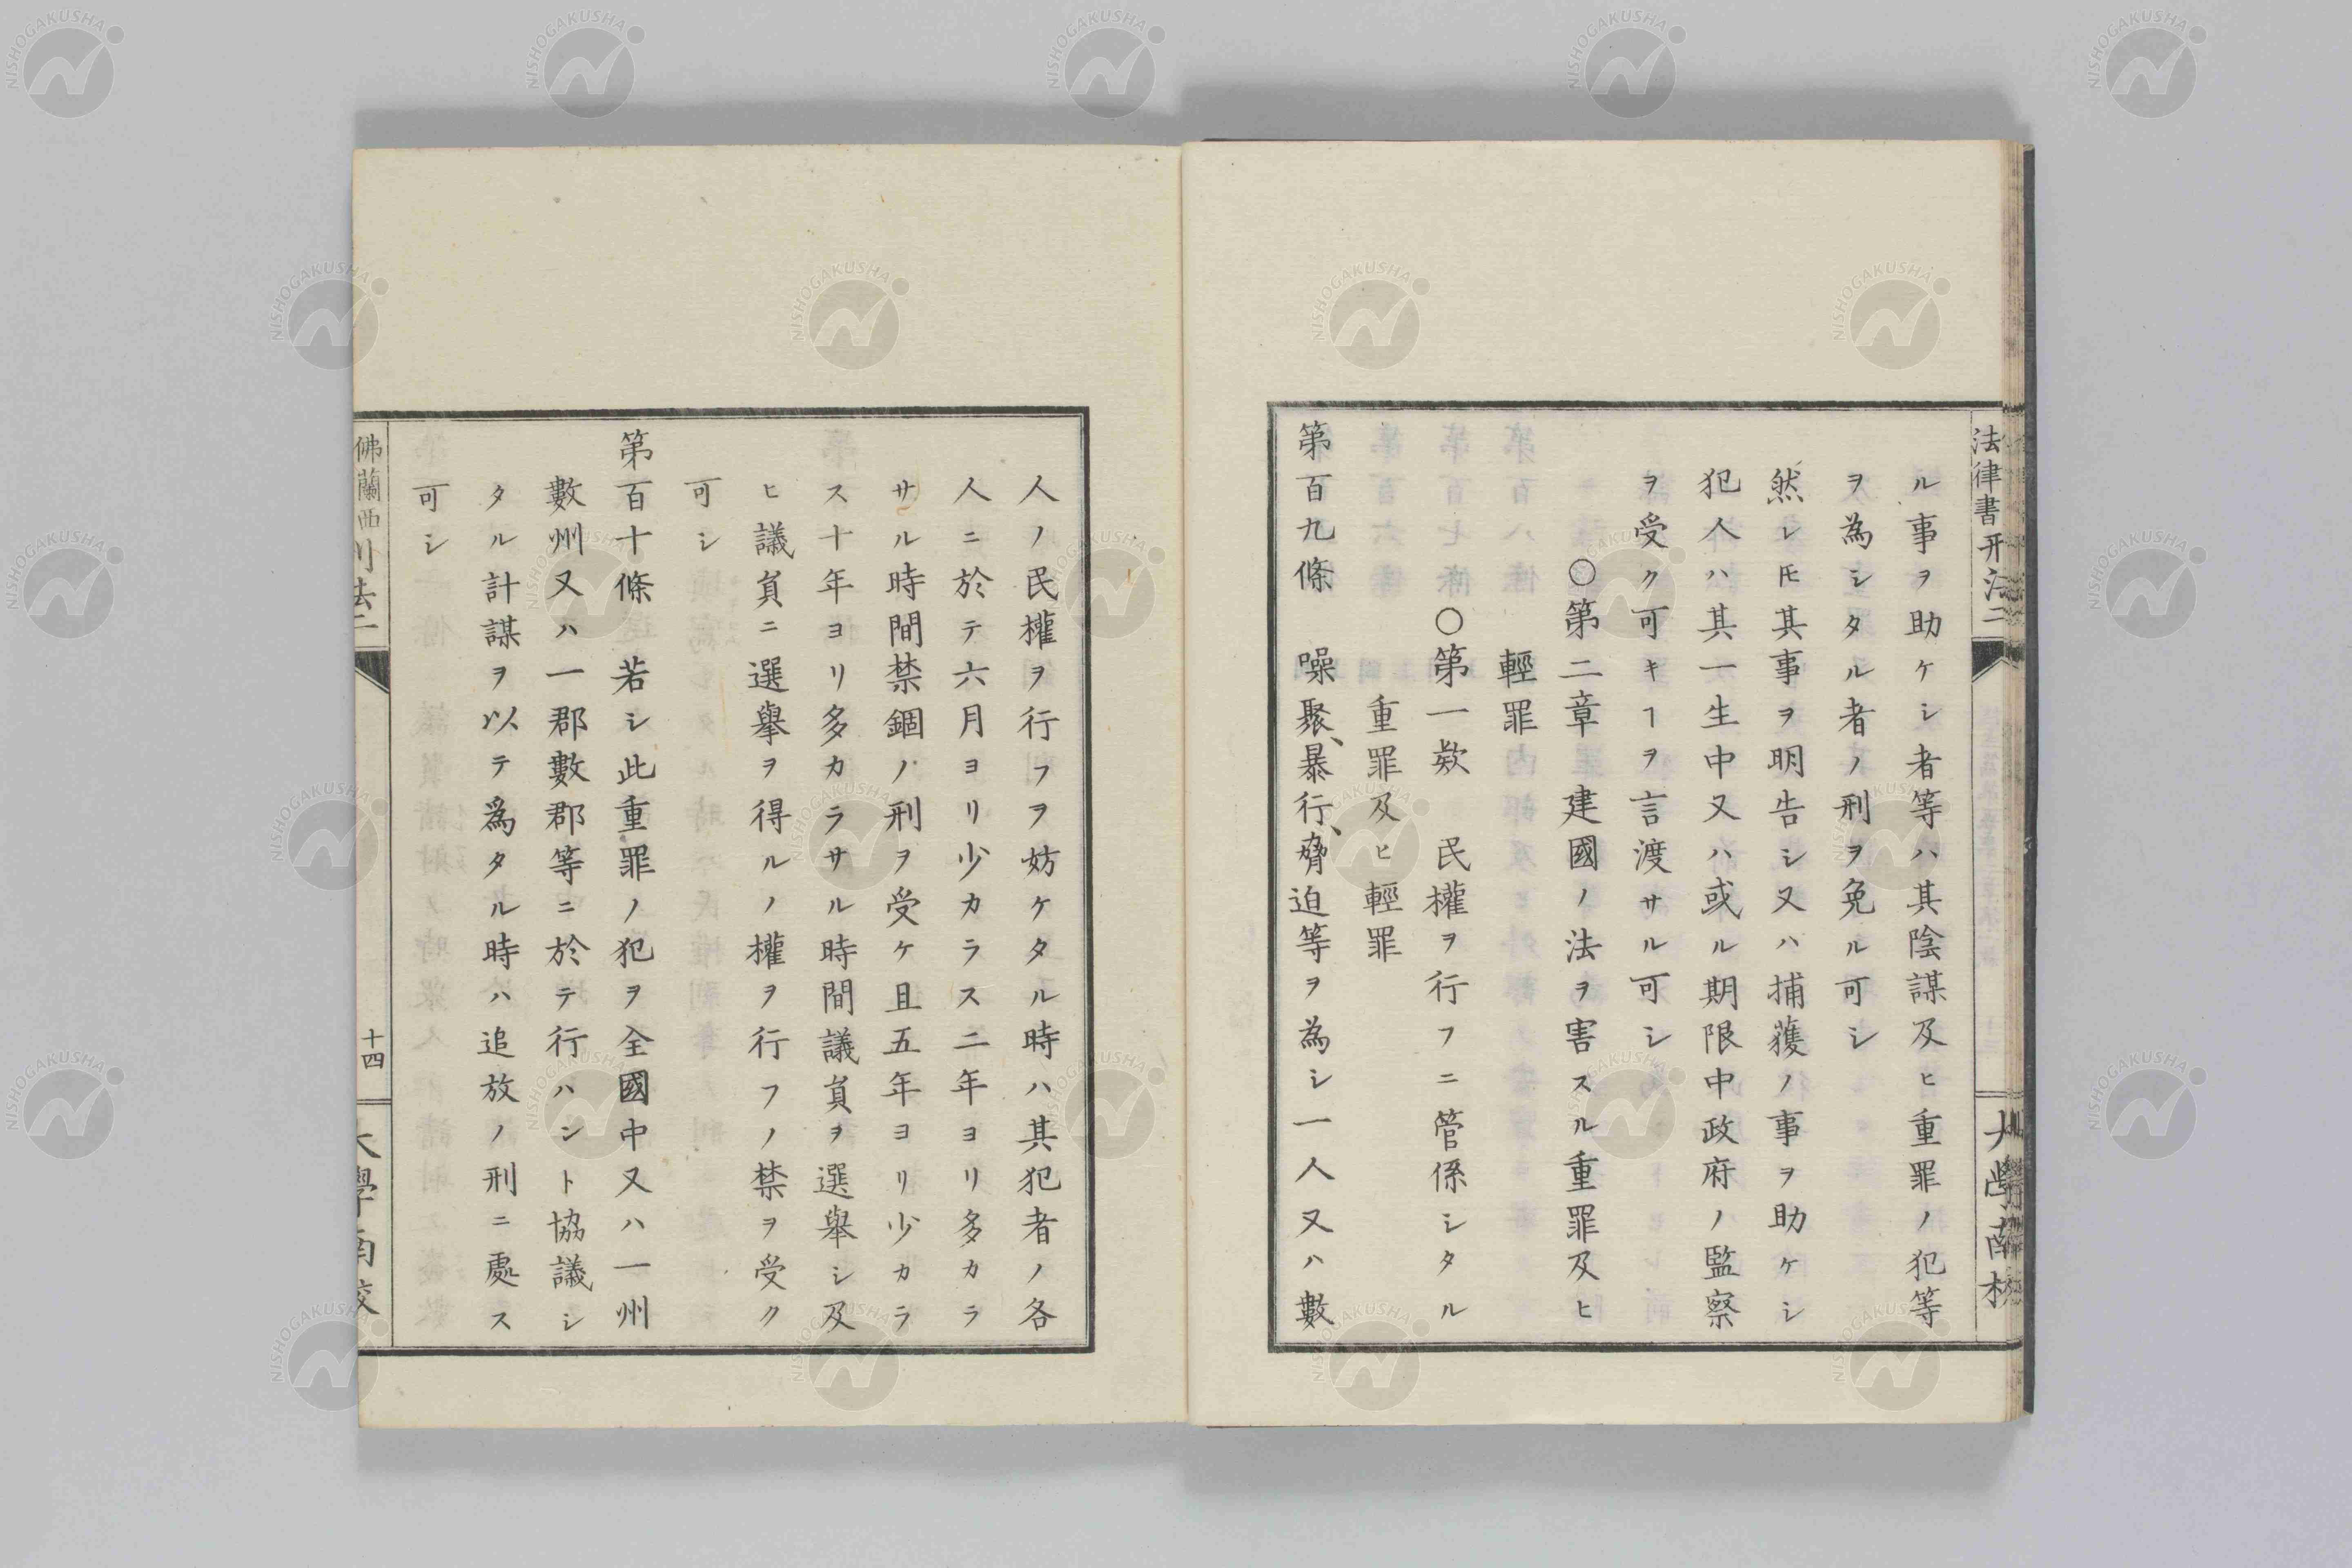 ル事ヲ助ケシ者等ハ其陰謀及ヒ重罪ノ犯等
ヲ為シタル者ノ刑ヲ免ル可シ
然レ𪜈其事ヲ明告シ又ハ捕獲ノ事ヲ助ケシ
犯人ハ其一生中又ハ或ル期限中政府ノ監察
ヲ受ク可キヿヲ言渡サル可シ
○第二章建國ノ法ヲ害スル重罪及ヒ
輕罪
○第一欵 民權ヲ行フニ管係シタル
重罪及ヒ輕罪
第百九條 噪聚、暴行、脅迫等ヲ為シ一人又ハ數
人ノ民權ヲ行フヲ妨ケタル時ハ其犯者ノ各
人ニ於テ六月ヨリ少カラス二年ヨリ多カラ
サル時間禁錮ノ刑ヲ受ケ且五年ヨリ少カラ
ス十年ヨリ多カラサル時間議負ヲ選舉シ及
ヒ議負ニ選舉ヲ得ルノ權ヲ行フノ禁ヲ受ク
可シ
第百十條 若シ此重罪ノ犯ヲ全國中又ハ一州
數州又ハ一郡數郡等ニ於テ行ハント協議シ
タル計謀ヲ以テ爲タル時ハ追放ノ刑ニ處ス
可シ
法律書刑法二
大學南校
佛蘭西刑法二
十四
大學南校
NISHOGAKUSHA